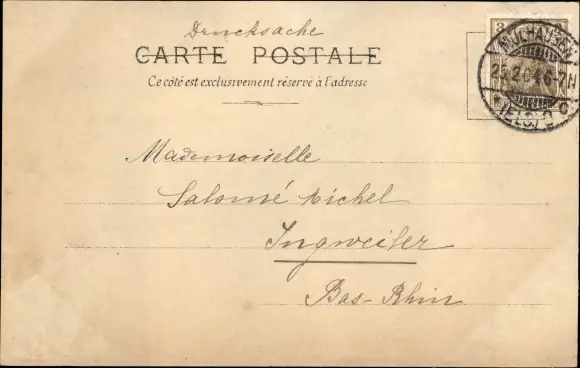 Drucksache
CARTE POSTALE
Ce côté est exclusivement réservé à l'adresse
3
MÜLHAUSEN
25.2.04.6-7N
* (ELS.) 2 c
Mademoiselle
Salomé Michel
Ingweiler
Bas-Rhin